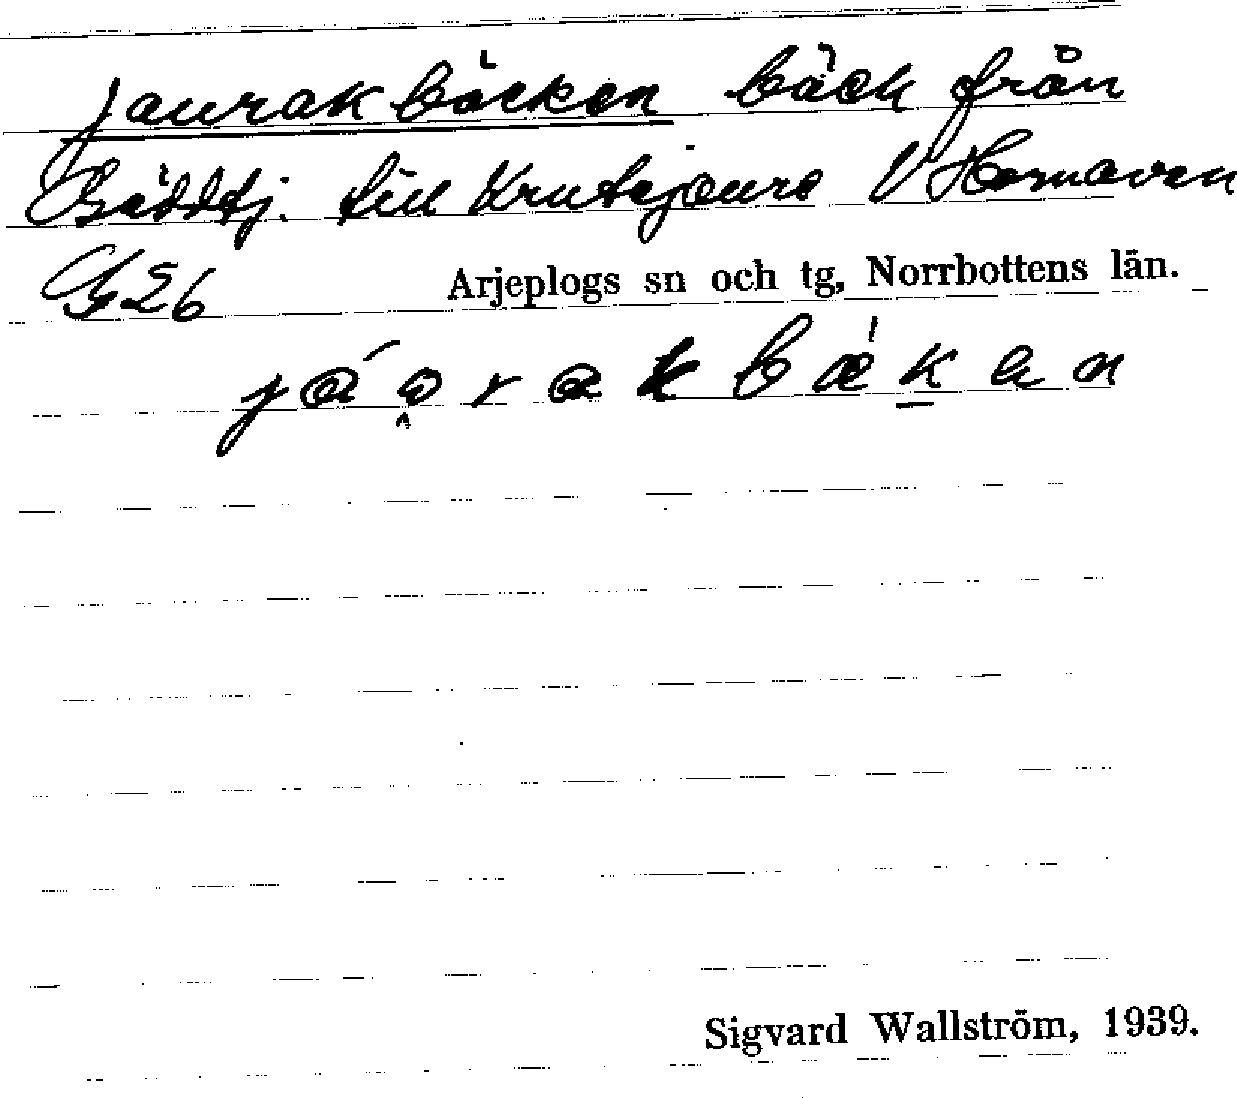 Jaurakbäcken bäck från
Bäddtj. till Krutejaure V Hornavan
G 26 Arjeplogs sn och tg, Norrbottens län.
Sigvard Wallström, 1939.